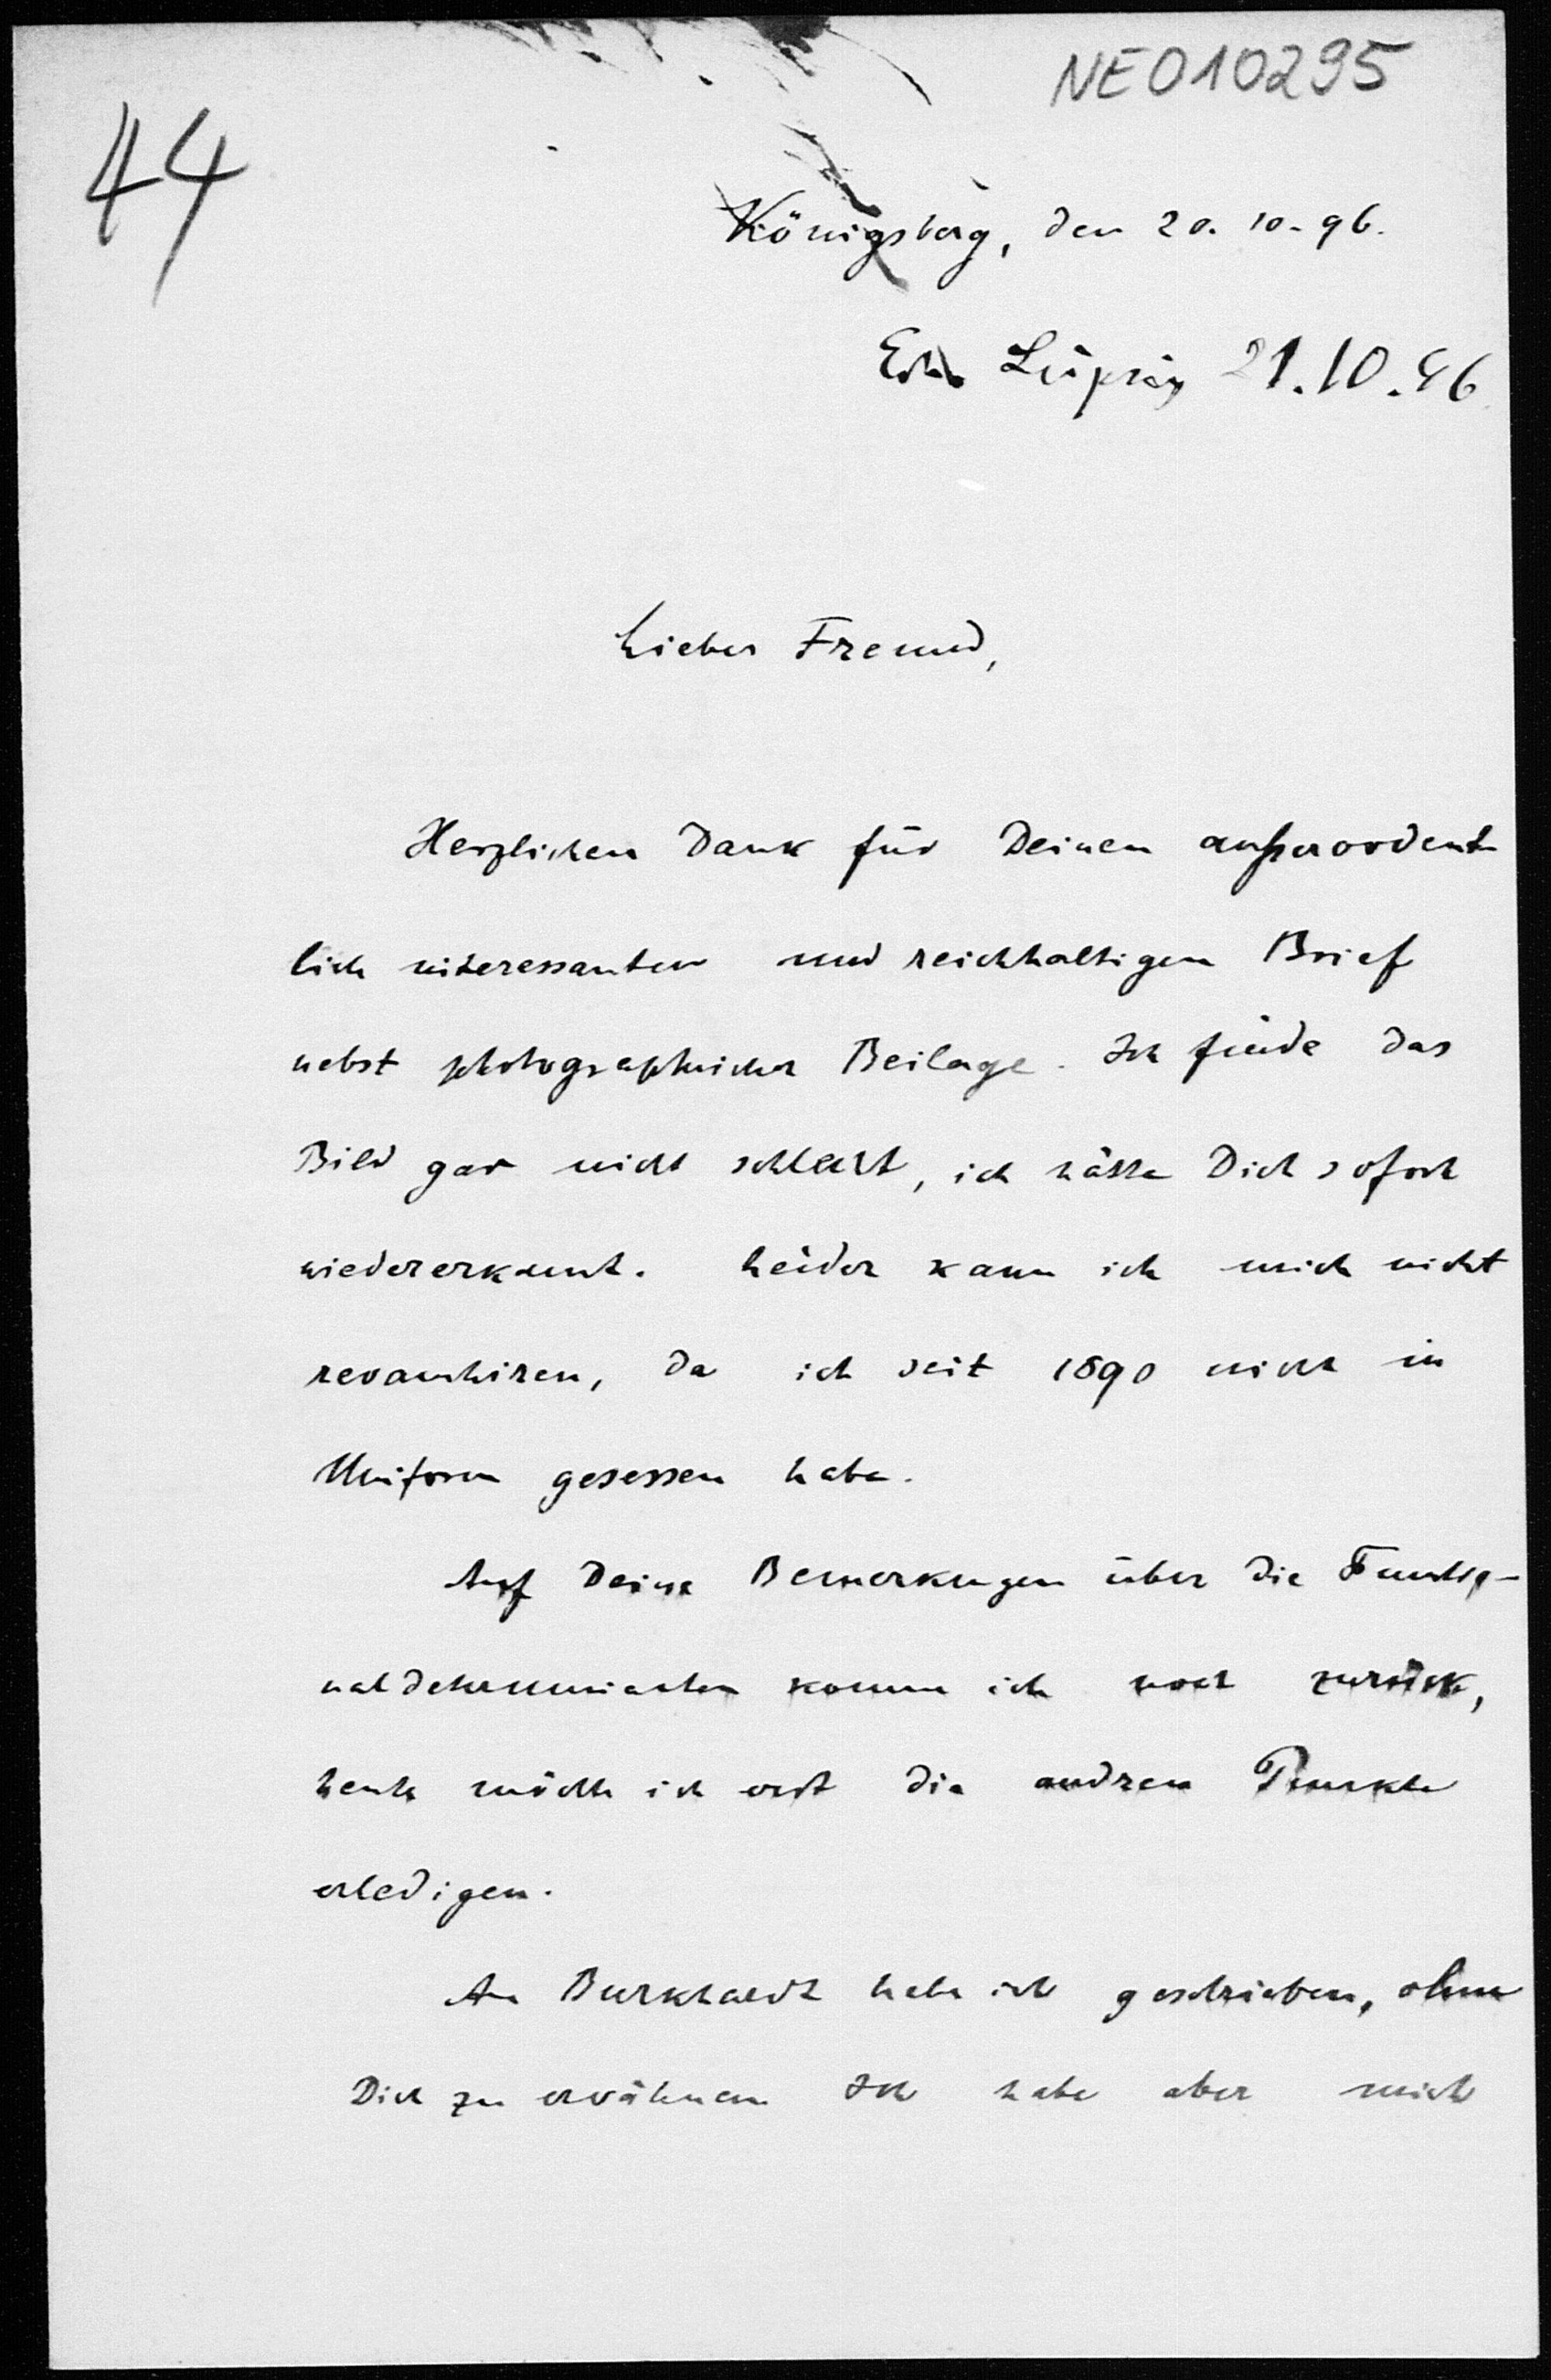 NE010295
44
Königsberg, den 20. 10. 96.
Leipzig 21.10.96
Lieber Freund,
Herzlichen Dank für Deinen außerordent-
lich interessanten und reichhaltigen Brief
nebst photographischer Beilage. Ich finde das
Bild gar nicht schlecht, ich hätte Dich sofort
wiedererkannt. Leider kann ich mich nicht
revanchiren, da ich seit 1890 nicht in
Uniform gesessen habe.
Auf Deine Bemerkungen über die Functio-
naldeterminanten komme ich noch zurück,
heute möchte ich erst die andren Punkte
erledigen.
An Burkhardt habe ich geschrieben, ohne
Dich zu erwähnen Ich habe aber mich